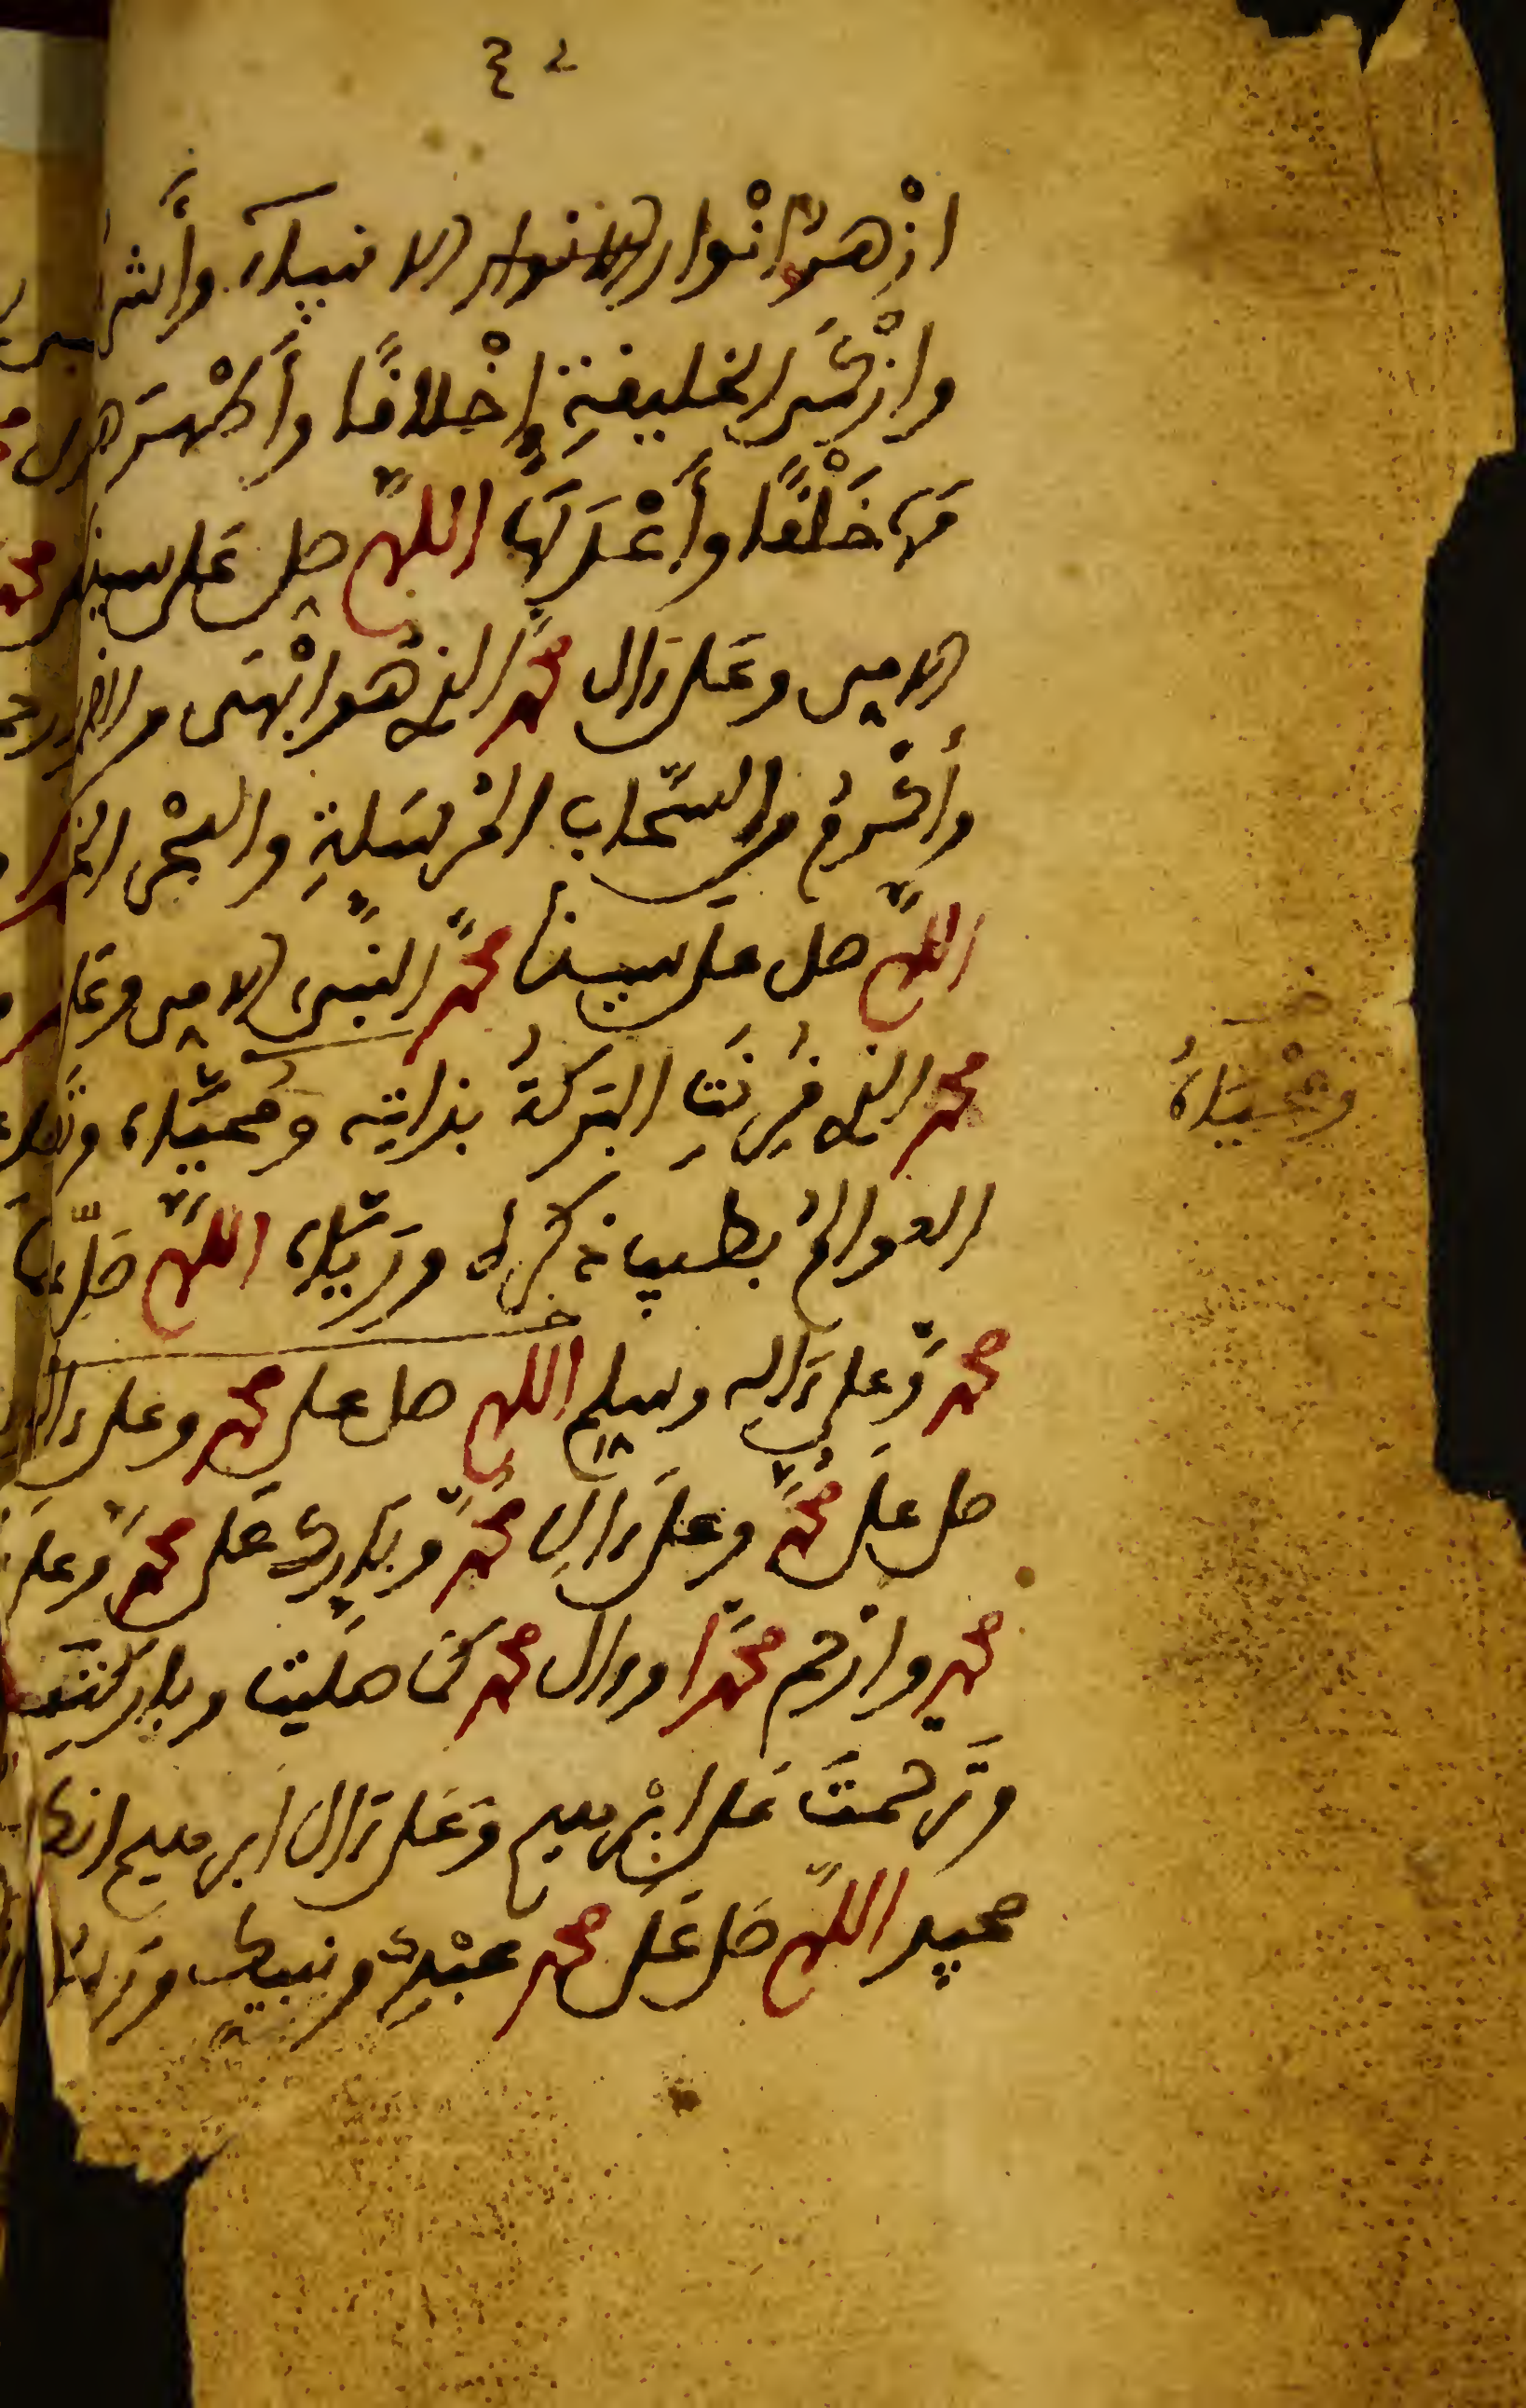 ازْهَرُ انْوار الانوار الانبياء وأشر
وازْكَى الخليفةِ إخْلافًا وأطْهَرَها
مَها خَلْفًا وأعْدَلَها اللهمّ صل على سيدنا
الامى وعلى ءال محمد الذى هو ابْهَى من القمر
وأكْرمُ من السّحاب المُرْسَلةِ والبحْر
اللهمّ صل على سيدنا محمدٍ النبى الامى وعلى
محمد الذى قُرِنَتِ البَركةُ بذاتِه ومُحَيَّاه وتعطرت
ومُحْيَاهُ
العوالمُ بطيب ذكْره ورَيَّاه اللهمّ صَلِّ على
محمدٍ وعلى ءاله وسلم اللهم صل على محمد وعلى ءال
صل على محمدٍ وعلى ءالِ محمدٍ وبارك على محمدٍ وعلى
محمد وارحم محمدًا وءال محمد كما صليت وباركت
وتَرحمتَ على ابْرٰهيم وعلى ءال ابرٰهيم انك
مجيد اللهمّ صل على محمد عبْدِك ونبيك ورسولك